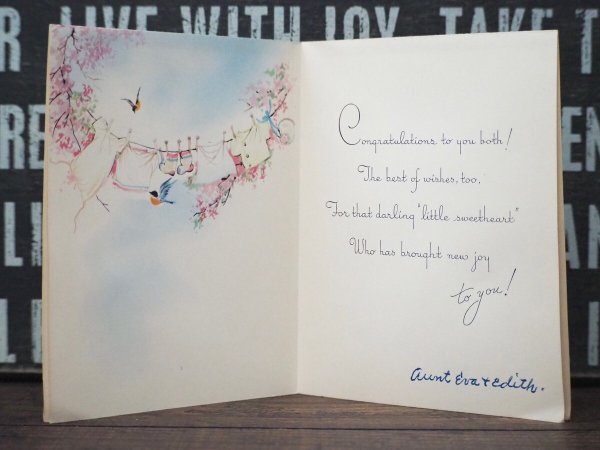 R LIVE WITH JOY, TAKE T
RE
EN
LI
AN
L
Congratulations to you both!
The best of wishes, too,
For that darling "little sweetheart"
Who has brought new joy
to you!
Aunt Eva + Edith.